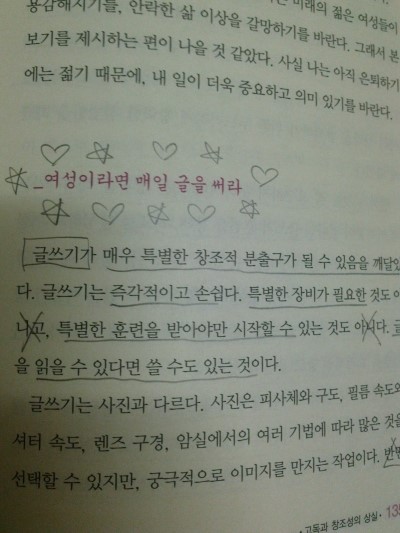 용감해지기를, 안락한 삶 이상을 갈망하기를 바란다. 그래서 본
보기를 제시하는 편이 나을 것 같았다. 사실 나는 아직 은퇴하기
에는 젊기 때문에, 내 일이 더욱 중요하고 의미 있기를 바란다.
_여성이라면 매일 글을 써라
글쓰기가 매우 특별한 창조적 분출구가 될 수 있음을 깨달았
다. 글쓰기는 즉각적이고 손쉽다. 특별한 장비가 필요한 것도 아
니고, 특별한 훈련을 받아야만 시작할 수 있는 것도 아니다. 글
을 읽을 수 있다면 쓸 수도 있는 것이다.
글쓰기는 사진과 다르다. 사진은 피사체와 구도, 필름 속도와
셔터 속도, 렌즈 구경, 암실에서의 여러 기법에 따라 많은 것을
선택할 수 있지만, 궁극적으로 이미지를 만지는 작업이다. 반면
· 고독과 창조성의 상실 · 135